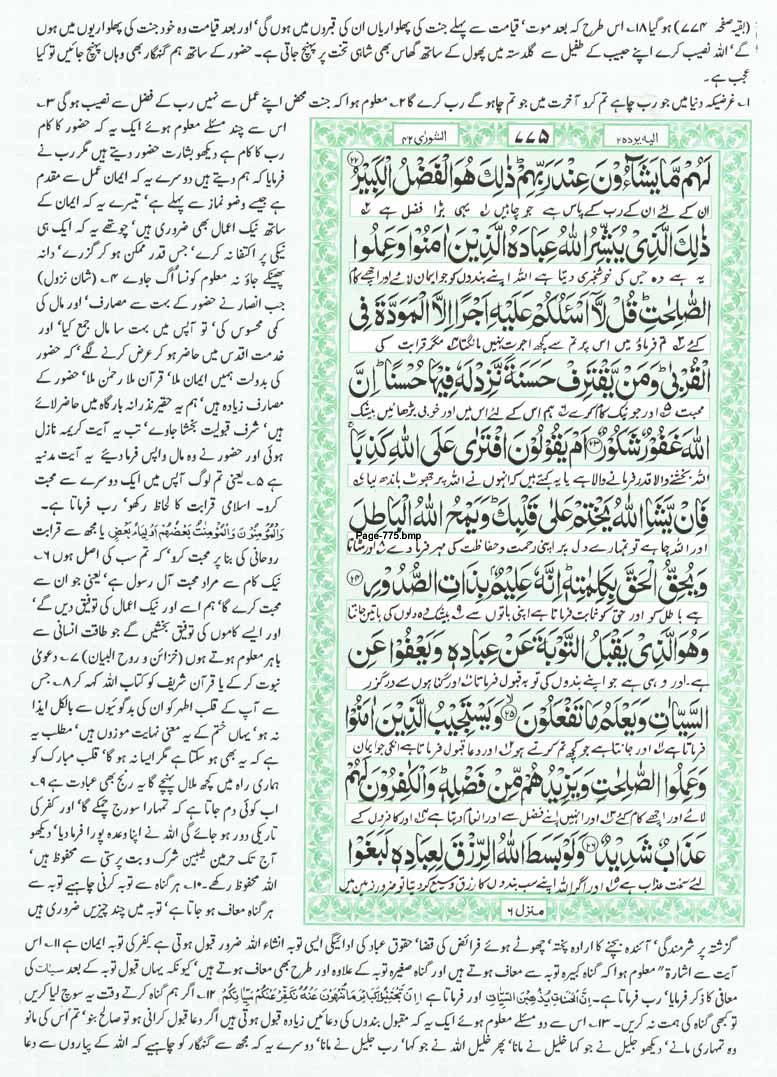 (بقیہ صفحہ ۷۷۴) ہو گیا ۱۸؎ اس طرح کہ بعد موت، قیامت سے پہلے جنت کی پھلواریاں ان کی قبروں میں ہوں گی، اور بعد قیامت وہ خود جنت کی پھلواریوں میں ہوں
گے، اللہ نصیب کرے اپنے حبیب کے طفیل سے گلدستہ میں پھول کے ساتھ گھاس بھی شاہی تخت پر پہنچ جاتی ہے۔ حضور کے ساتھ ہم گنہگار بھی وہاں پہنچ جائیں تو کیا
عجب ہے۔
۱؎ غرضیکہ دنیا میں جو رب چاہے تم کرو آخرت میں جو تم چاہو گے رب کرے گا ۲؎ معلوم ہوا کہ جنت محض اپنے عمل سے نہیں رب کے فضل سے نصیب ہو گی ۳؎
اس سے چند مسئلے معلوم ہوئے ایک یہ کہ حضور کا کام
رب کا کام ہے دیکھو بشارت حضور دیتے ہیں مگر رب نے
فرمایا کہ ہم دیتے ہیں دوسرے یہ کہ ایمان عمل سے مقدم
ہے جیسے وضو نماز سے پہلے ہے، تیسرے یہ کہ ایمان کے
ساتھ نیک اعمال بھی ضروری ہیں، چوتھے یہ کہ ایک ہی
نیکی پر اکتفا نہ کرے، جس قدر ممکن ہو کر گزرے، دانہ
پھینکے جاؤ نہ معلوم کونسا اُگ جاوے ۴؎ (شان نزول)
جب انصار نے حضور کے بہت سے مصارف، اور مال کی
کمی محسوس کی، تو آپس میں بہت سا مال جمع کیا، اور
خدمت اقدس میں حاضر ہو کر عرض کرنے لگے، کہ حضور
کی بدولت ہمیں ایمان ملا، قرآن ملا، رحمٰن ملا، حضور کے
مصارف زیادہ ہیں، ہم یہ حقیر نذرانہ بارگاہ میں حاضر لائے
ہیں، شرف قبولیت بخشا جاوے، تب یہ آیت کریمہ نازل
ہوئی اور حضور نے وہ مال واپس فرما دیئے یہ آیت مدنیہ
ہے ۵؎ یعنی تم لوگ آپس میں ایک دوسرے سے محبت
کرو۔ اسلامی قرابت کا لحاظ رکھو، رب فرماتا ہے۔
وَالْمُؤْمِنُوْنَ وَالْمُؤْمِنٰتُ بَعْضُهُمْ اَوْلِيَآءُ بَعْضٍ یا مجھ سے قرابت
روحانی کی بنا پر محبت کرو، کہ تم سب کی اصل ہوں ۶؎
نیک کام سے مراد محبت آل رسول ہے، یعنی جو ان سے
محبت کرے گا، ہم اسے اور نیک اعمال کی توفیق دیں گے،
اور ایسے کاموں کی توفیق بخشیں گے جو طاقت انسانی سے
باہر معلوم ہوتے ہوں (خزائن و روح البیان) ۷؎ دعویٰ
نبوت کر کے یا قرآن شریف کو کتاب اللہ کہہ کر ۸؎ جس
سے آپ کے قلب اطہر کو ان کی بدگوئیوں سے بالکل ایذا
نہ ہو، یہاں ختم کے یہ معنی نہایت موزوں ہیں، مطلب یہ
ہے کہ یہ بھی ہو سکتا ہے مگر ایسا نہ ہو گا، قلب مبارک کو
ہماری راہ میں کچھ ملال پہنچے گا یہ رنج بھی عبادت ہے ۹؎
اب کوئی دم جاتا ہے کہ تمہارا سورج چمکے گا، اور کفر کی
تاریکی دور ہو جائے گی اللہ نے اپنا وعدہ پورا فرما دیا، دیکھو
آج تک حرمین طیبین شرک و بت پرستی سے محفوظ ہیں،
اللہ محفوظ رکھے۔ ۱۰؎ ہر گناہ سے توبہ کرنی چاہیے توبہ سے
ہر گناہ معاف ہو جاتا ہے، توبہ میں چند چیزیں ضروری ہیں
الیہ یردہ ۲۵
۷۷۵
الشورٰی ۴۲
لَهُمْ مَّا يَشَآءُوْنَ عِنْدَ رَبِّهِمْ ذٰلِكَ هُوَ الْفَضْلُ الْكَبِيْرُ ۲۲
ان کے لئے ان کے رب کے پاس ہے جو چاہیں ۱؎ یہی بڑا فضل ہے ۲؎
ذٰلِكَ الَّذِيْ يُبَشِّرُ اللّٰهُ عِبَادَهُ الَّذِيْنَ اٰمَنُوْا وَعَمِلُوا
یہ ہے وہ جس کی خوشخبری دیتا ہے اللہ اپنے بندوں کو جو ایمان لائے اور اچھے کام
الصّٰلِحٰتِ قُلْ لَّآ اَسْـَٔلُكُمْ عَلَيْهِ اَجْرًا اِلَّا الْمَوَدَّةَ فِي
کئے ۳؎ تم فرماؤ میں اس پر تم سے کچھ اجرت نہیں مانگتا ۴؎ مگر قرابت کی
الْقُرْبٰى وَمَنْ يَّقْتَرِفْ حَسَنَةً نَّزِدْ لَهٗ فِيْهَا حُسْنًا اِنَّ
محبت ۵؎ اور جو نیک کام کرے ۶؎ ہم اس کے لئے اس میں اور خوبی بڑھائیں بیشک
اللّٰهَ غَفُوْرٌ شَكُوْرٌ ۲۳ اَمْ يَقُوْلُوْنَ افْتَرٰى عَلَى اللّٰهِ كَذِبًا
اللہ بخشنے والا قدر فرمانے والا ہے یا یہ کہتے ہیں کہ انہوں نے اللہ پر جھوٹ باندھ لیا ۷؎
فَاِنْ يَّشَاِ اللّٰهُ يَخْتِمْ عَلٰى قَلْبِكَ وَيَمْحُ اللّٰهُ الْبَاطِلَ
Page-775.bmp
اور اللہ چاہے تو تمہارے دل پر اپنی رحمت و حفاظت کی مہر فرما دے ۸؎ اور مٹاتا
وَيُحِقُّ الْحَقَّ بِكَلِمٰتِهٖ اِنَّهٗ عَلِيْمٌۢ بِذَاتِ الصُّدُوْرِ ۲۴
ہے باطل کو اور حق کو ثابت فرماتا ہے اپنی باتوں سے ۹؎ بیشک وہ دلوں کی باتیں جانتا
وَهُوَ الَّذِيْ يَقْبَلُ التَّوْبَةَ عَنْ عِبَادِهٖ وَيَعْفُوْا عَنِ
ہے۔ اور وہی ہے جو اپنے بندوں کی توبہ قبول فرماتا ۱۰؎ اور گناہوں سے درگزر
السَّيِّاٰتِ وَيَعْلَمُ مَا تَفْعَلُوْنَ ۲۵ وَيَسْتَجِيْبُ الَّذِيْنَ اٰمَنُوْا
فرماتا ہے ۱۱؎ اور جانتا ہے جو کچھ تم کرتے ہو ۱۲؎ اور دعا قبول فرماتا ہے انکی جو ایمان
وَعَمِلُوا الصّٰلِحٰتِ وَيَزِيْدُهُمْ مِّنْ فَضْلِهٖ وَالْكٰفِرُوْنَ لَهُمْ
لائے اور اچھے کام کئے ۱۳؎ اور انہیں اپنے فضل سے اور انعام دیتا ہے اور کافروں کے
عَذَابٌ شَدِيْدٌ ۲۶ وَلَوْ بَسَطَ اللّٰهُ الرِّزْقَ لِعِبَادِهٖ لَبَغَوْا
لئے سخت عذاب ہے اور اگر اللہ اپنے سب بندوں کا رزق وسیع کر دیتا تو ضرور زمین میں
منزل ۶
گزشتہ پر شرمندگی، آئندہ بچنے کا ارادہ پختہ، چھوٹے ہوئے فرائض کی قضا، حقوق عباد کی ادائیگی ایسی توبہ انشاء اللہ ضرور قبول ہوتی ہے کفر کی توبہ ایمان ہے ۱۱؎ اس
آیت سے اشارۃً معلوم ہوا کہ گناہ کبیرہ توبہ سے معاف ہوتے ہیں اور گناہ صغیرہ توبہ کے علاوہ اور طرح بھی معاف ہوتے ہیں، کیونکہ یہاں قبول توبہ کے بعد سیئات کی
معافی کا ذکر فرمایا، رب فرماتا ہے۔ اِنَّ الْحَسَنٰتِ يُذْهِبْنَ السَّيِّاٰتِ اور فرماتا ہے اِنْ تَجْتَنِبُوْا كَبَآئِرَ مَا تُنْهَوْنَ عَنْهُ نُكَفِّرْ عَنْكُمْ سَيِّاٰتِكُمْ ۱۲؎ اگر ہم گناہ کرتے وقت یہ سوچ لیا کریں
تو کبھی گناہ کی ہمت نہ کریں۔ ۱۳؎ اس سے دو مسئلے معلوم ہوئے ایک یہ کہ مقبول بندوں کی دعائیں زیادہ قبول ہوتی ہیں اگر دعا قبول کرانی ہو تو صالح بنو، تم اس کی مانو
وہ تمہاری مانے، دیکھو جلیل نے جو کہا خلیل نے مانا، پھر خلیل اللہ نے جو کہا، رب جلیل نے مانا، دوسرے یہ کہ مجھ سے گنہگار کو چاہیے کہ اللہ کے پیاروں سے دعا